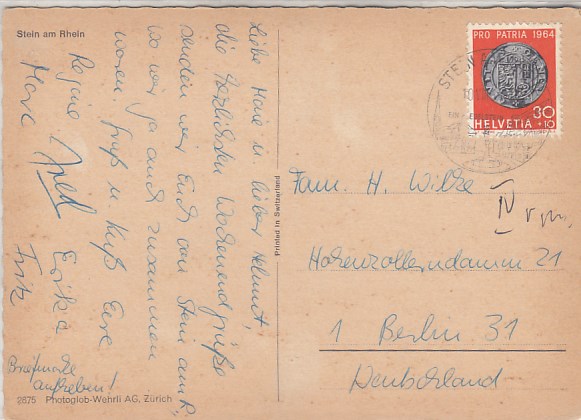 Stein am Rhein
Liebe Mane u. lieber Helmut,
die herzlichsten Wochenendgrüße
senden wir Euch von Stein am R.
wo wir ja auch zusammen
waren. Gruß u. Kuß Eure
Marc
Erika
Fritz
Briefmarke
aufheben!
2675 Photoglob-Wehrli AG, Zürich
Printed in Switzerland
PRO PATRIA 1964
30
+10
HELVETIA
STEIN
Fam. H. Wilke
IV
Hohenzollerndamm 21
1 Berlin 31
Deutschland